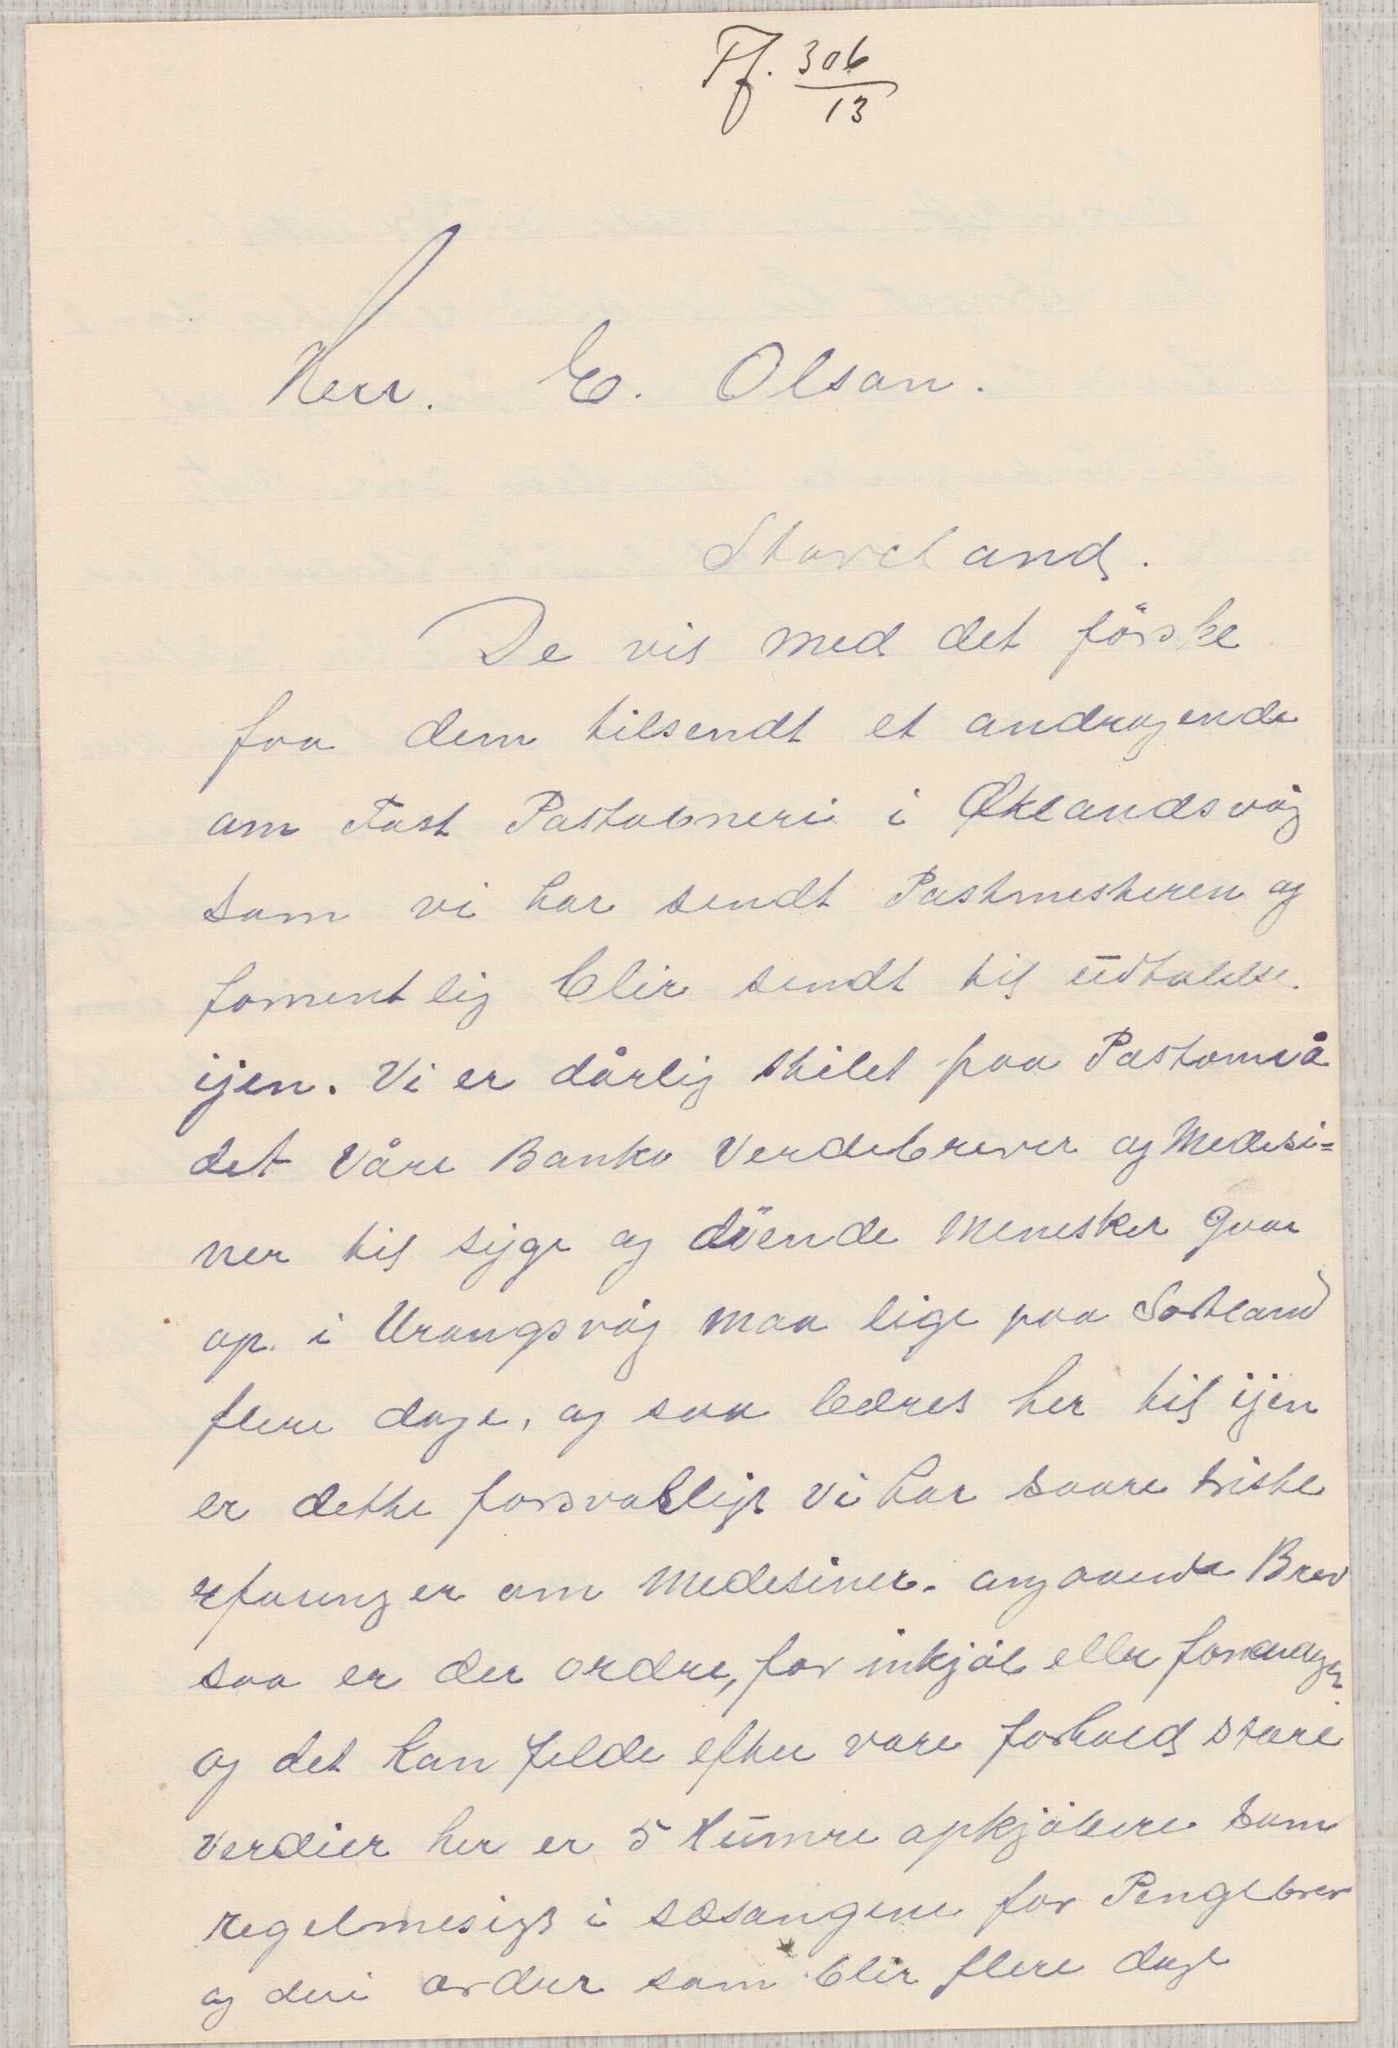 Ff. 306
13
Herr. E. Olsen.
Storeland.
De vil med det förste
faa dem tilsendt et andragende
om Fast Postobneri i Økelandsvåg
som vi har sendt Postmesteren og
fomentlig blir sendt til udtalelse.
ijen. Vi er dårlig stilet paa Postområ
det Våre Banko Verdebrever og Medesi=
ner til syge og döende Menesker gaar
op. i Urangsvåg maa lige paa Sortland
flere dage, og saa bæres her til ijen
er dette forsvarligt vi har saare triste
erfaringer om Medesiner. angaaende Brev
saa er der ordre, for inkjöb eller
og det kan jelde efter vore forhold store
verdier her er 5 Hummre opkjöbere som
regelmesigt i sæsongene for Pengebrev
og deri ordrer som blir flere dage